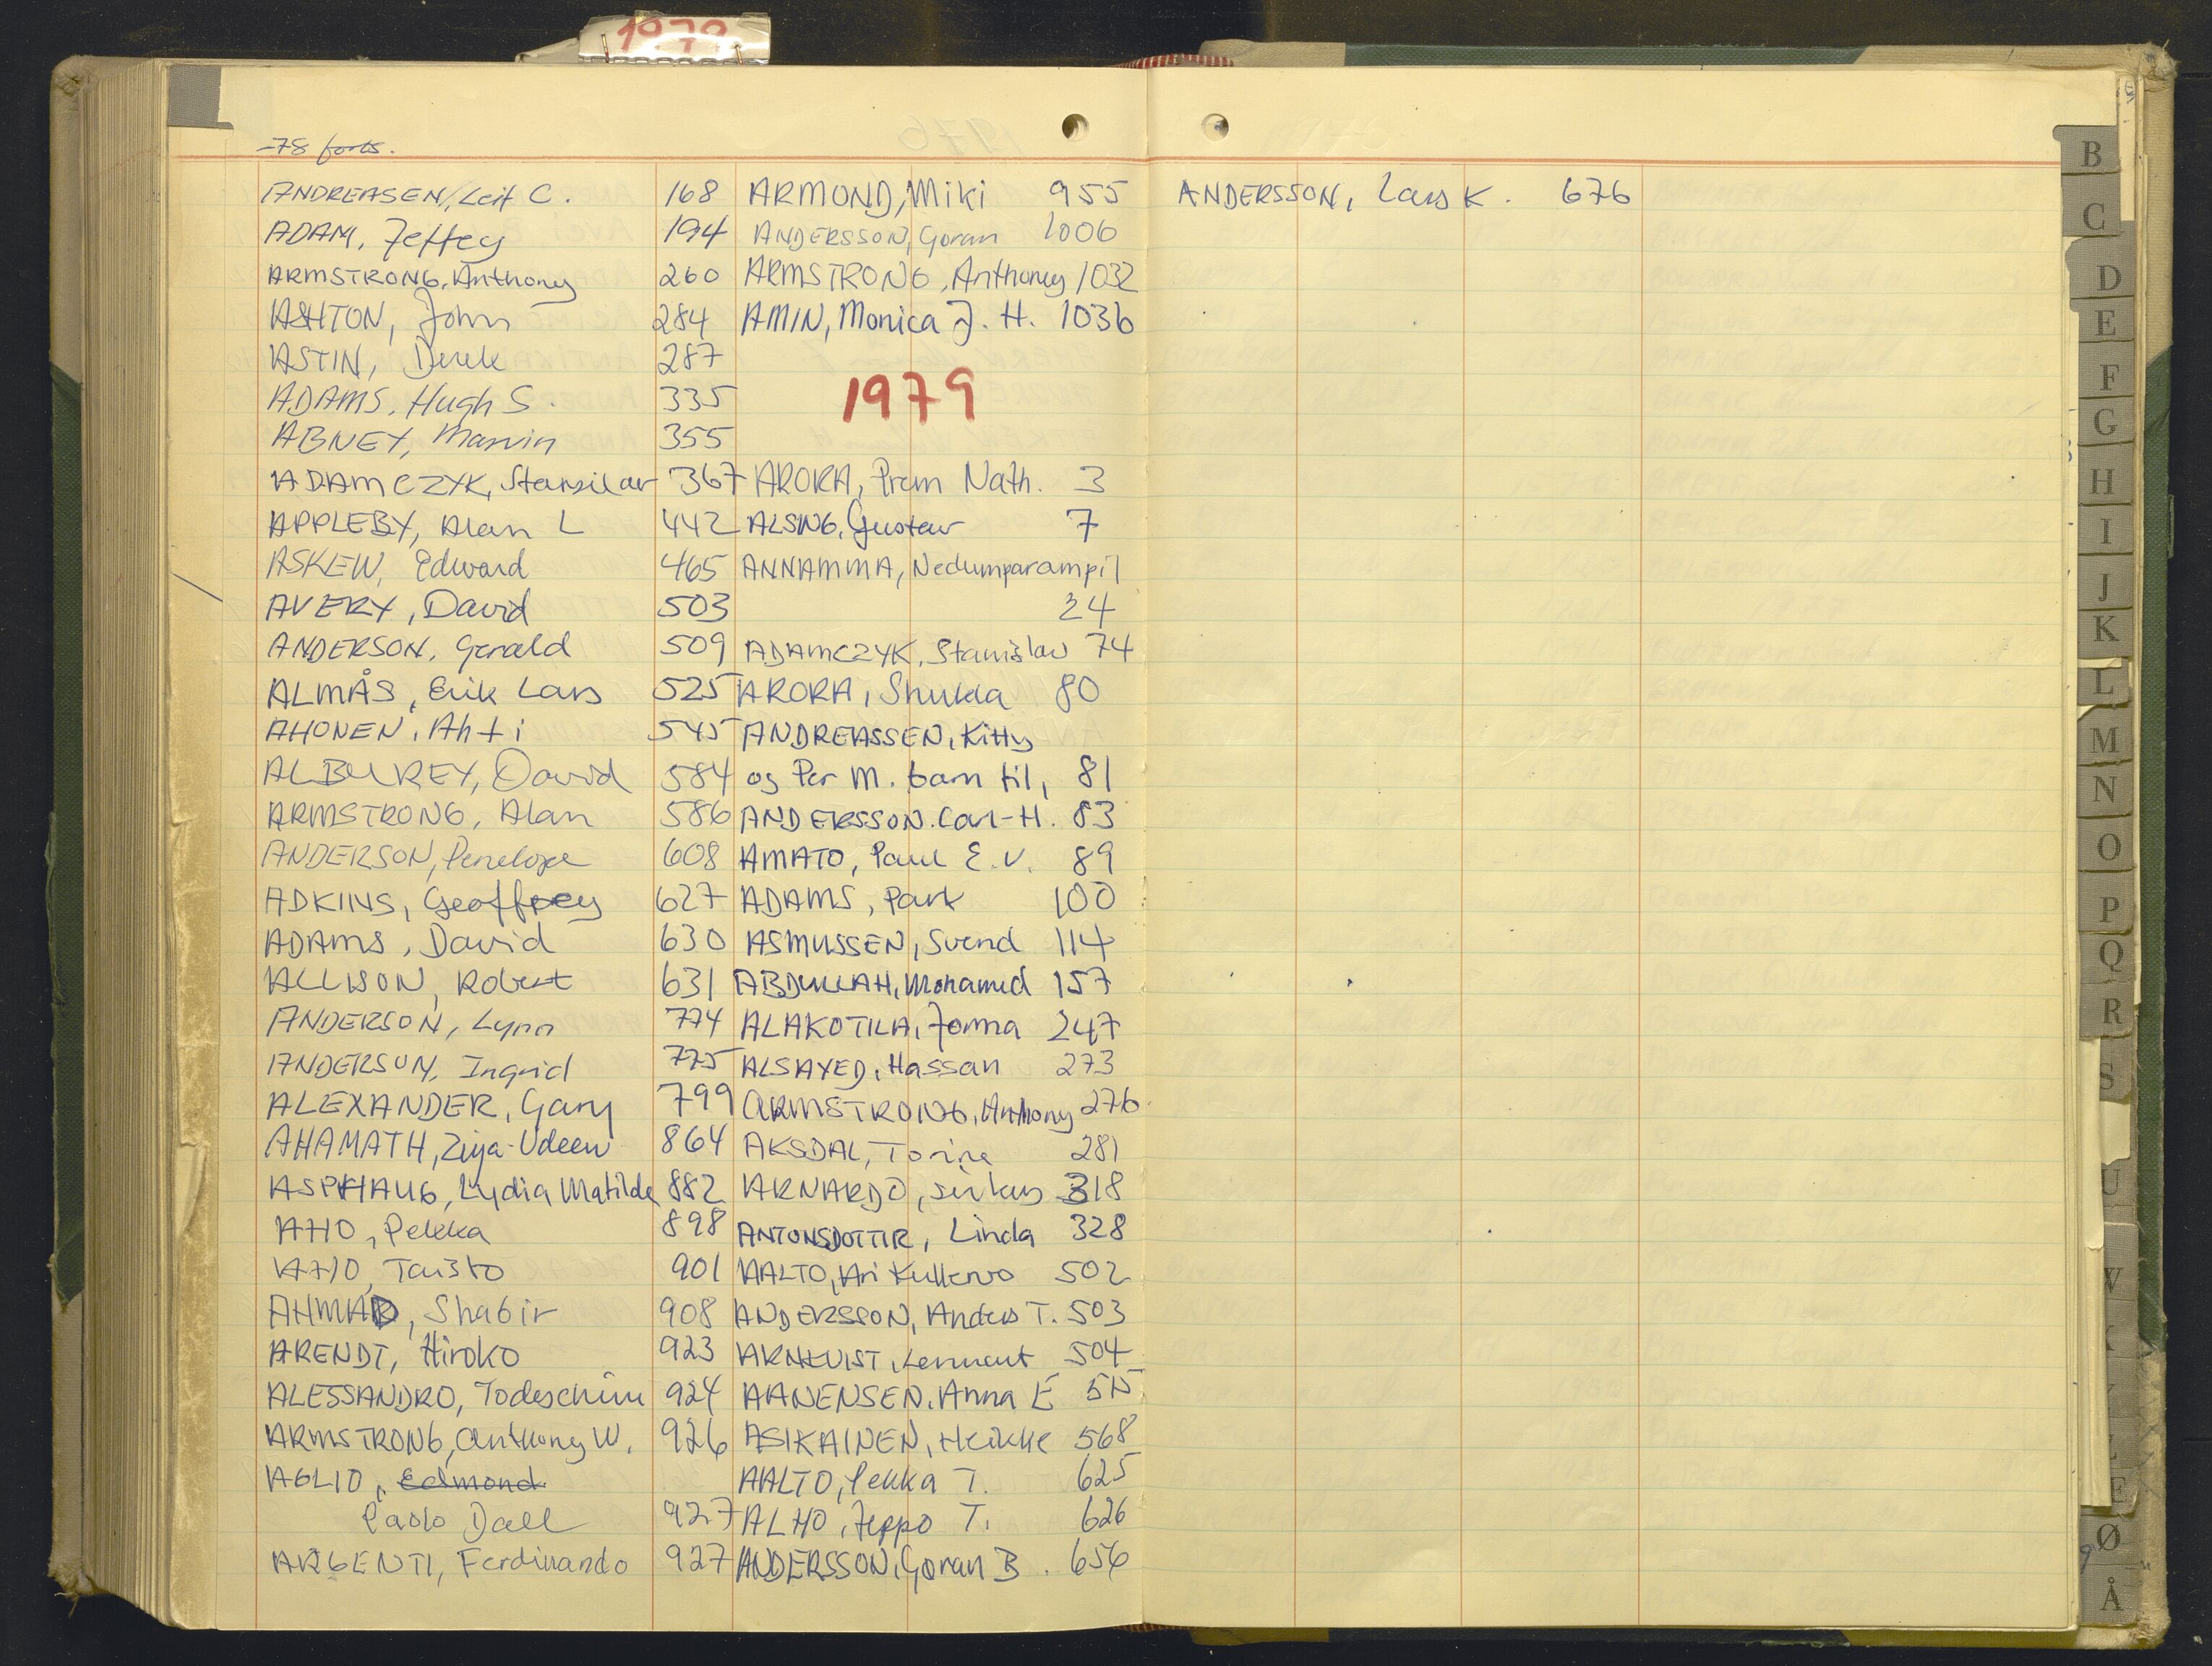 1979
-78 forts.
ANDREASEN, Leif C. 168
ADAM, Jeffey 194
ARMSTRONG, Anthony 260
ASHTON, John 284
ASTIN, Derek 287
ADAMS, Hugh S. 335
ABNEY, Marvin 355
ADAMCZYK, Stanislav 367
APPLEBY, Alan L 442
ASKEW, Edward 465
AVERY, David 503
ANDERSON, Gerald 509
ALMÅS, Erik Lars 525
AHONEN, Ahti 545
ALBUREY, David 584
ARMSTRONG, Alan 586
ANDERSON, Penelope 608
ADKINS, Geoffrey 627
ADAMS, David 630
ALLISON, Robert 631
ANDERSON, Lynn 774
ANDERSON, Ingrid 775
ALEXANDER, Gary 799
AHAMATH, Ziya-Udeen 864
ASPHAUG, Lydia Matilde 882
AHO, Pekka 898
AHO, Taisto 901
AHMAD, Shabir 908
ARENDT, Hiroko 923
ALESSANDRO, Todeschini 924
ARMSTRONG, Anthony W. 926
AGLIO, Edmond
Paolo Dall 927
ARGENTI, Ferdinando 927
ARMOND, Miki 955
ANDERSSON, Goran 1006
ARMSTRONG, Anthoney 1032
AMIN, Monica J. H. 1036
1979
ARORA, Prem Nath. 3
ALSING, Gustav 7
ANNAMMA, Nedumparampil
24
ADAMCZYK, Stanislav 74
ARORA, Shukla 80
ANDREASSEN, Kitty
og Per M. barn til, 81
ANDERSSON. Carl-H. 83
AMATO, Paul E.V. 89
ADAMS, Park 100
ASMUSSEN, Svend 114
ABDULLAH, Mohamed 157
ALAKOTILA, Jorma 247
ALSAYED, Hassan 273
ARMSTRONG, Anthony 276
AKSDAL, Torine 281
ARNARDO, sirkus 318
ANTONSDOTTIR, Linda 328
AALTO, Ari Kullervo 502
ANDERSSON, Anders T. 503
ARNKVIST, Lennart 504
AANENSEN, Anna E 515
ASIKAINEN, Heikki 568
AALTO, Pekka T. 625
ALHO, Jeppo T. 626
ANDERSSON, Goran B. 656
ANDERSSON, Lars K. 676
B
C
D
E
F
G
H
I
J
K
L
M
N
O
P
Q
R
S
U
Ø
Å